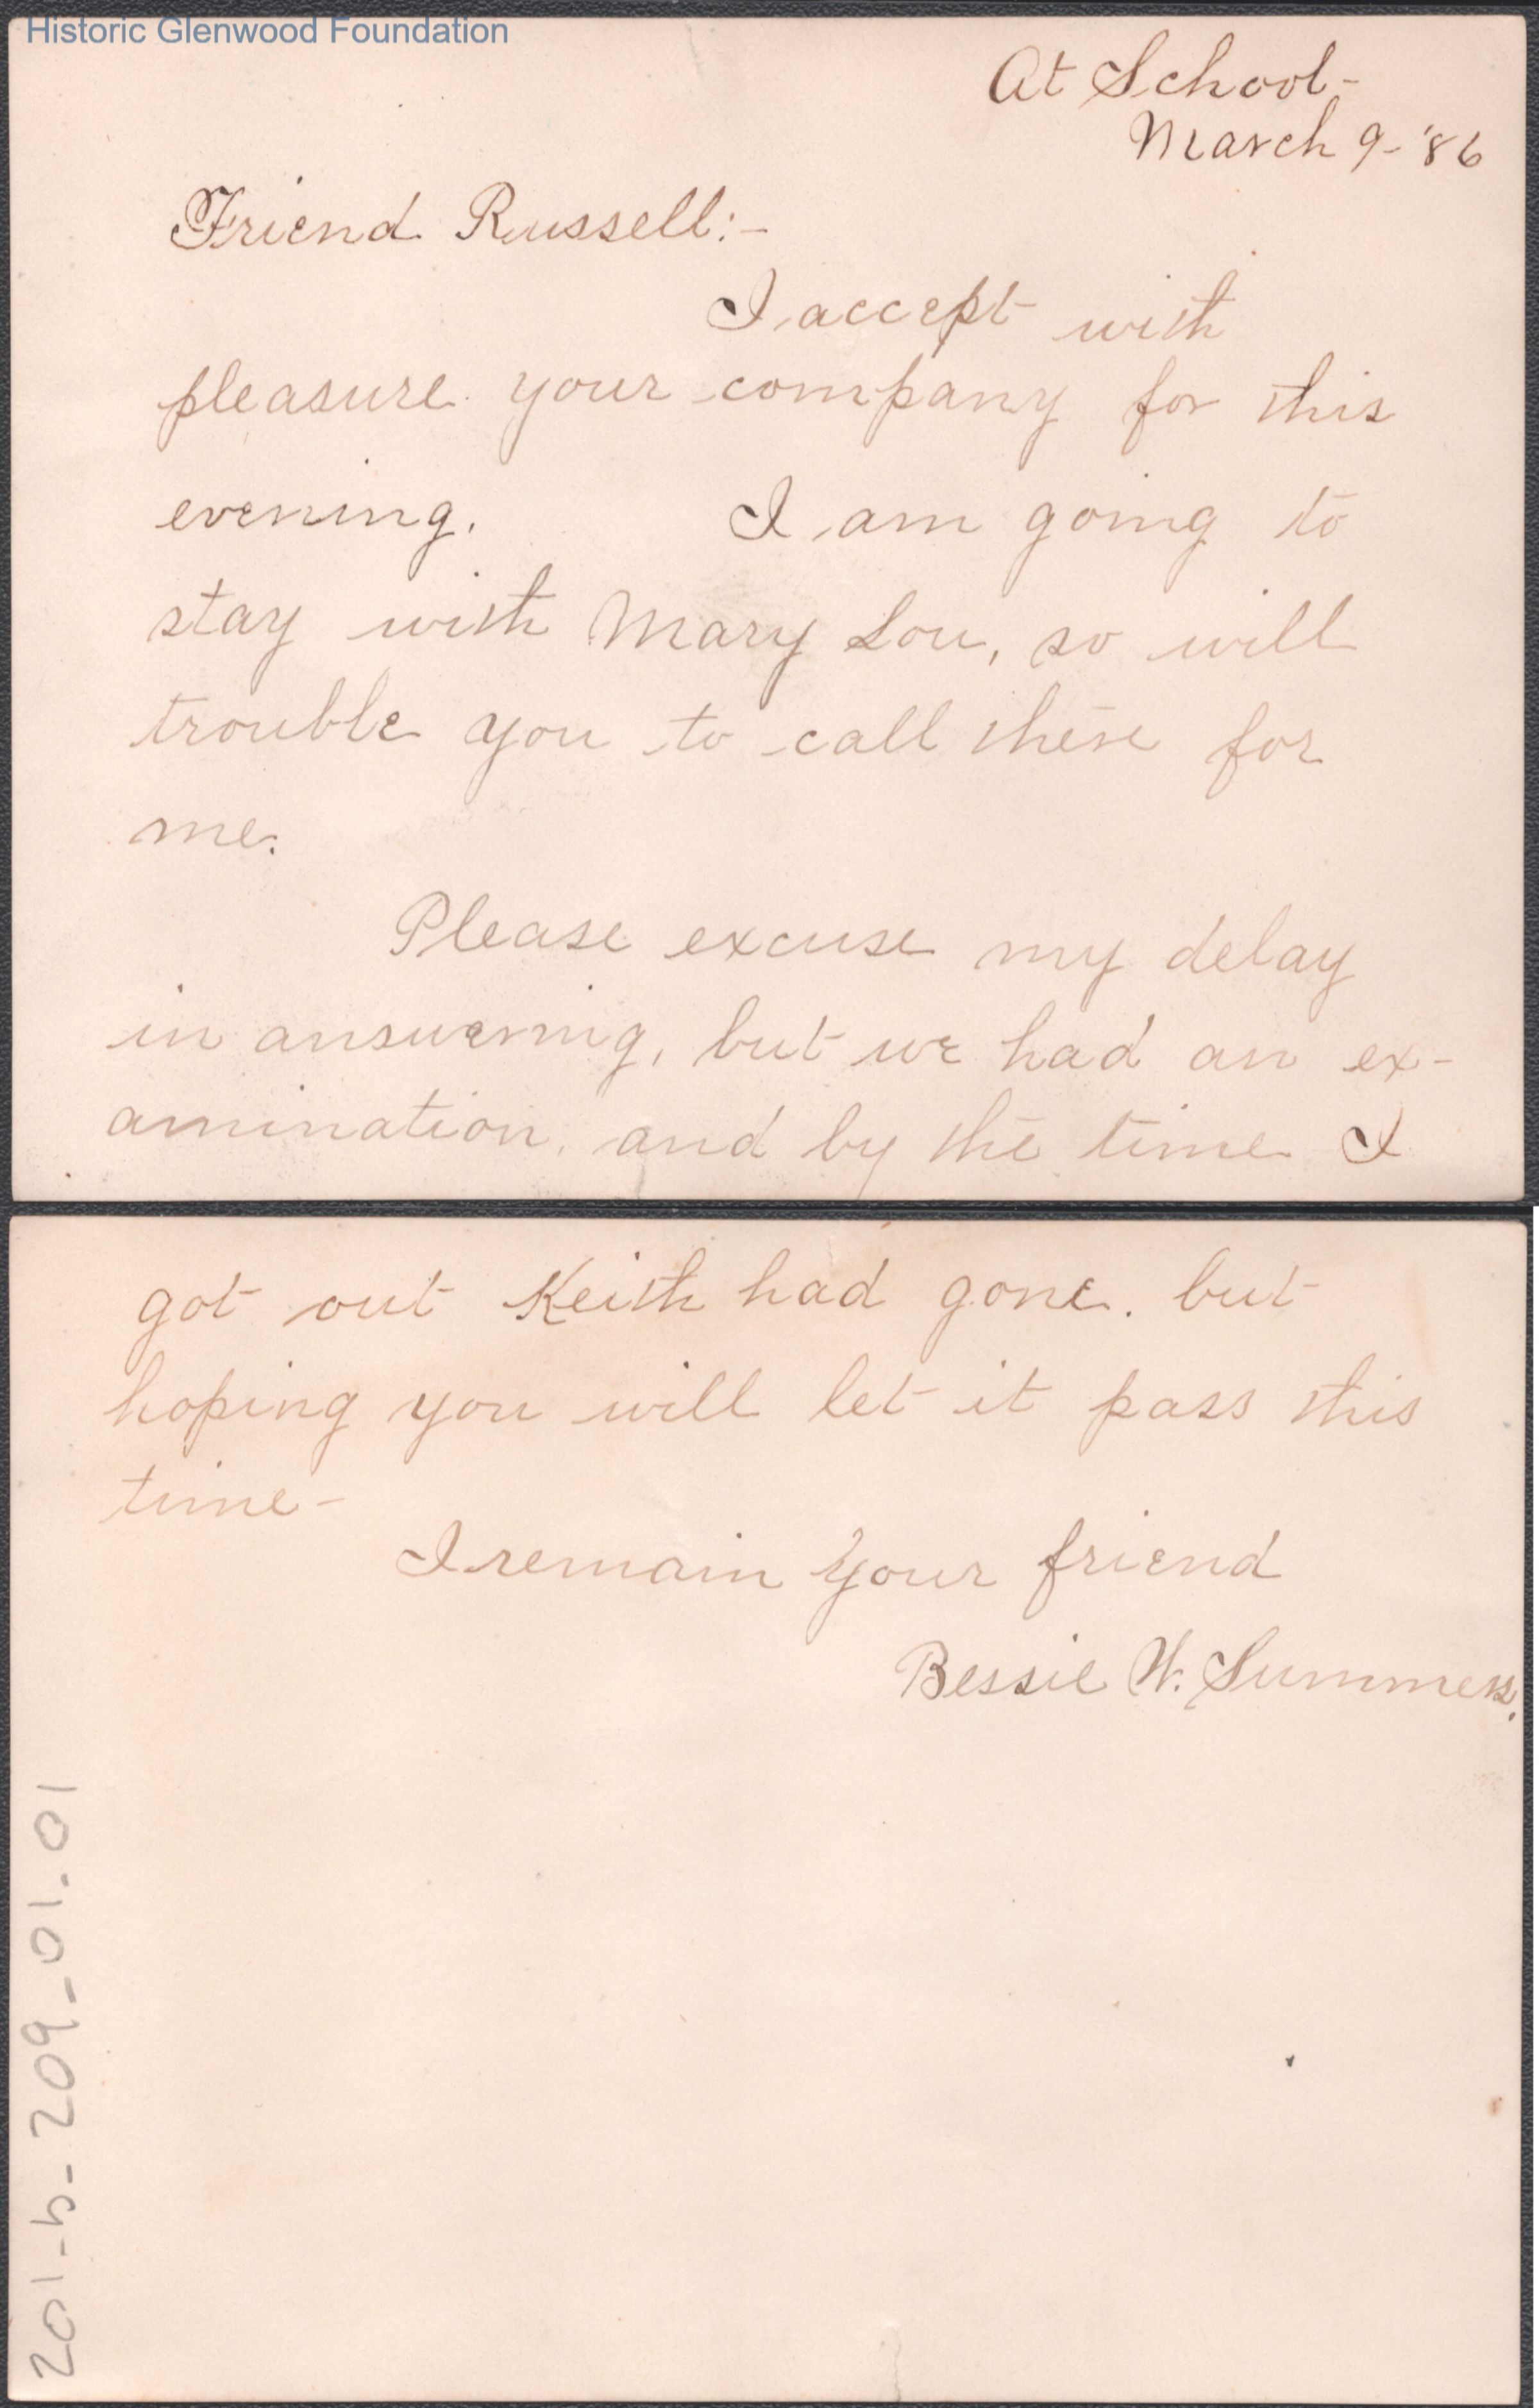 Historic Glenwood Foundation
At School-
March 9-'86
Friend Russell:-
I accept with
pleasure your company for this
evening. I am going to
stay with Mary Lou, so will
trouble you to call there for
me.
Please excuse my delay
in answering, but we had an ex-
amination, and by the time I
got out Keith had gone. but
hoping you will let it pass this
time-
I remain your friend
Bessie W. Summers.
201-h-209-01.01